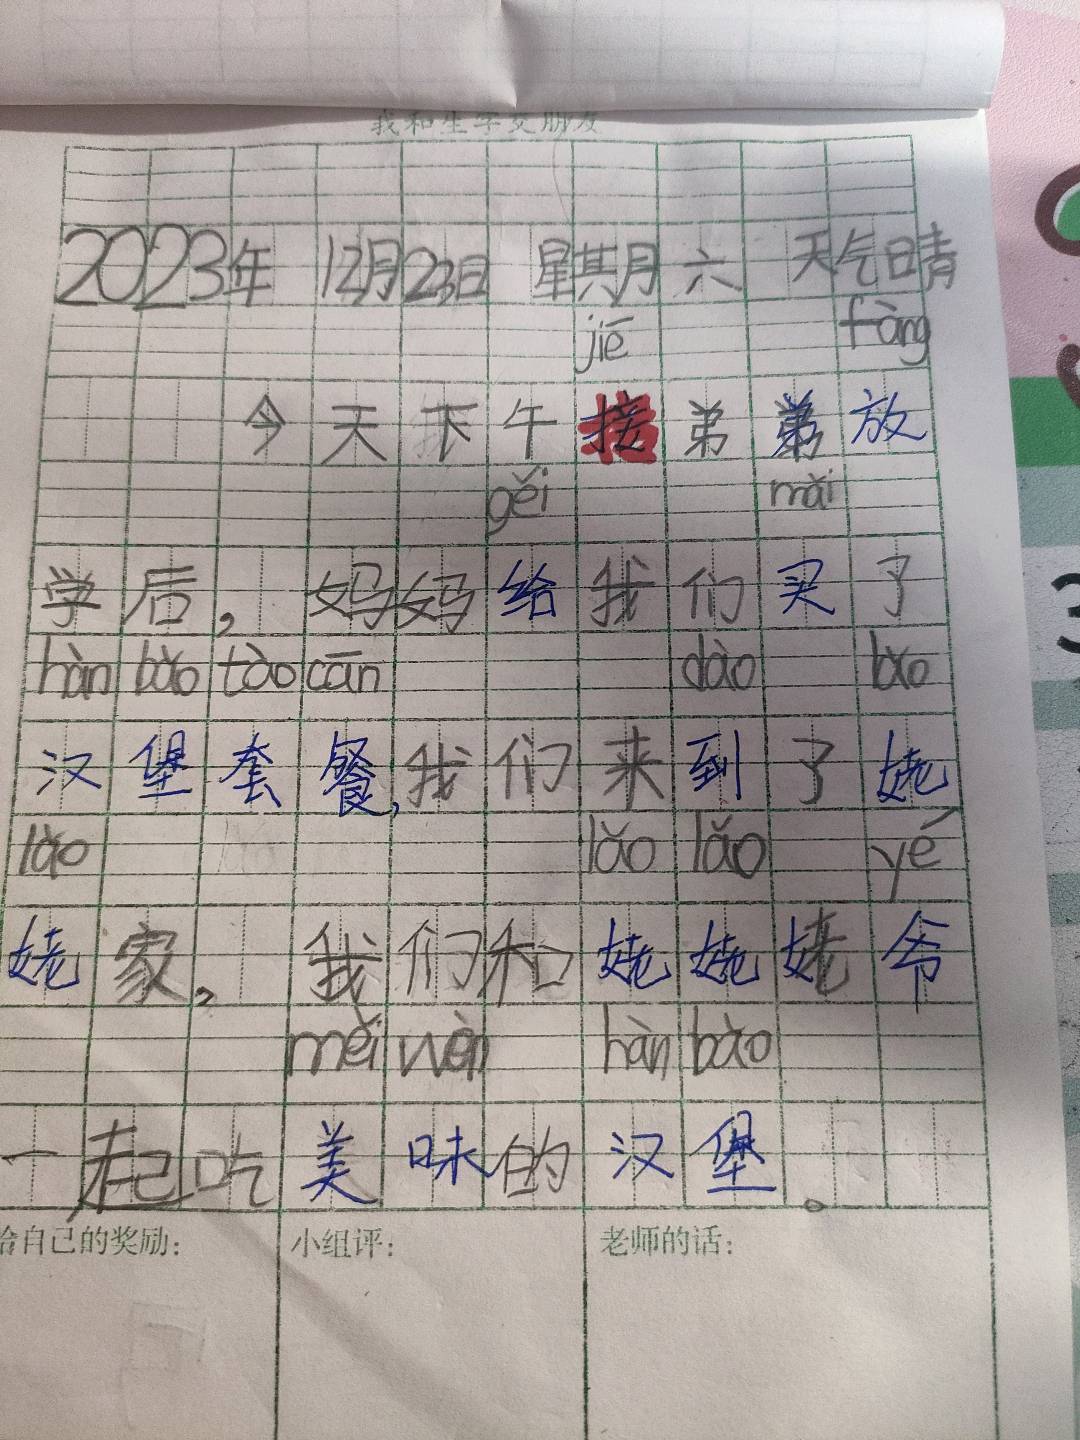 我和生字交朋友
2023年 12月23日 星期月六 天气晴
jiē fàng
今天下午接弟弟放
gěi mǎi
学后，妈妈给我们买了
hàn bǎo tào cān dào lǎo
汉堡套餐，我们来到了姥
lǎo lǎo lǎo yé
姥家，我们和姥姥姥爷
měi wèn hàn bǎo
一起吃美味的汉堡。
给自己的奖励： 小组评： 老师的话：